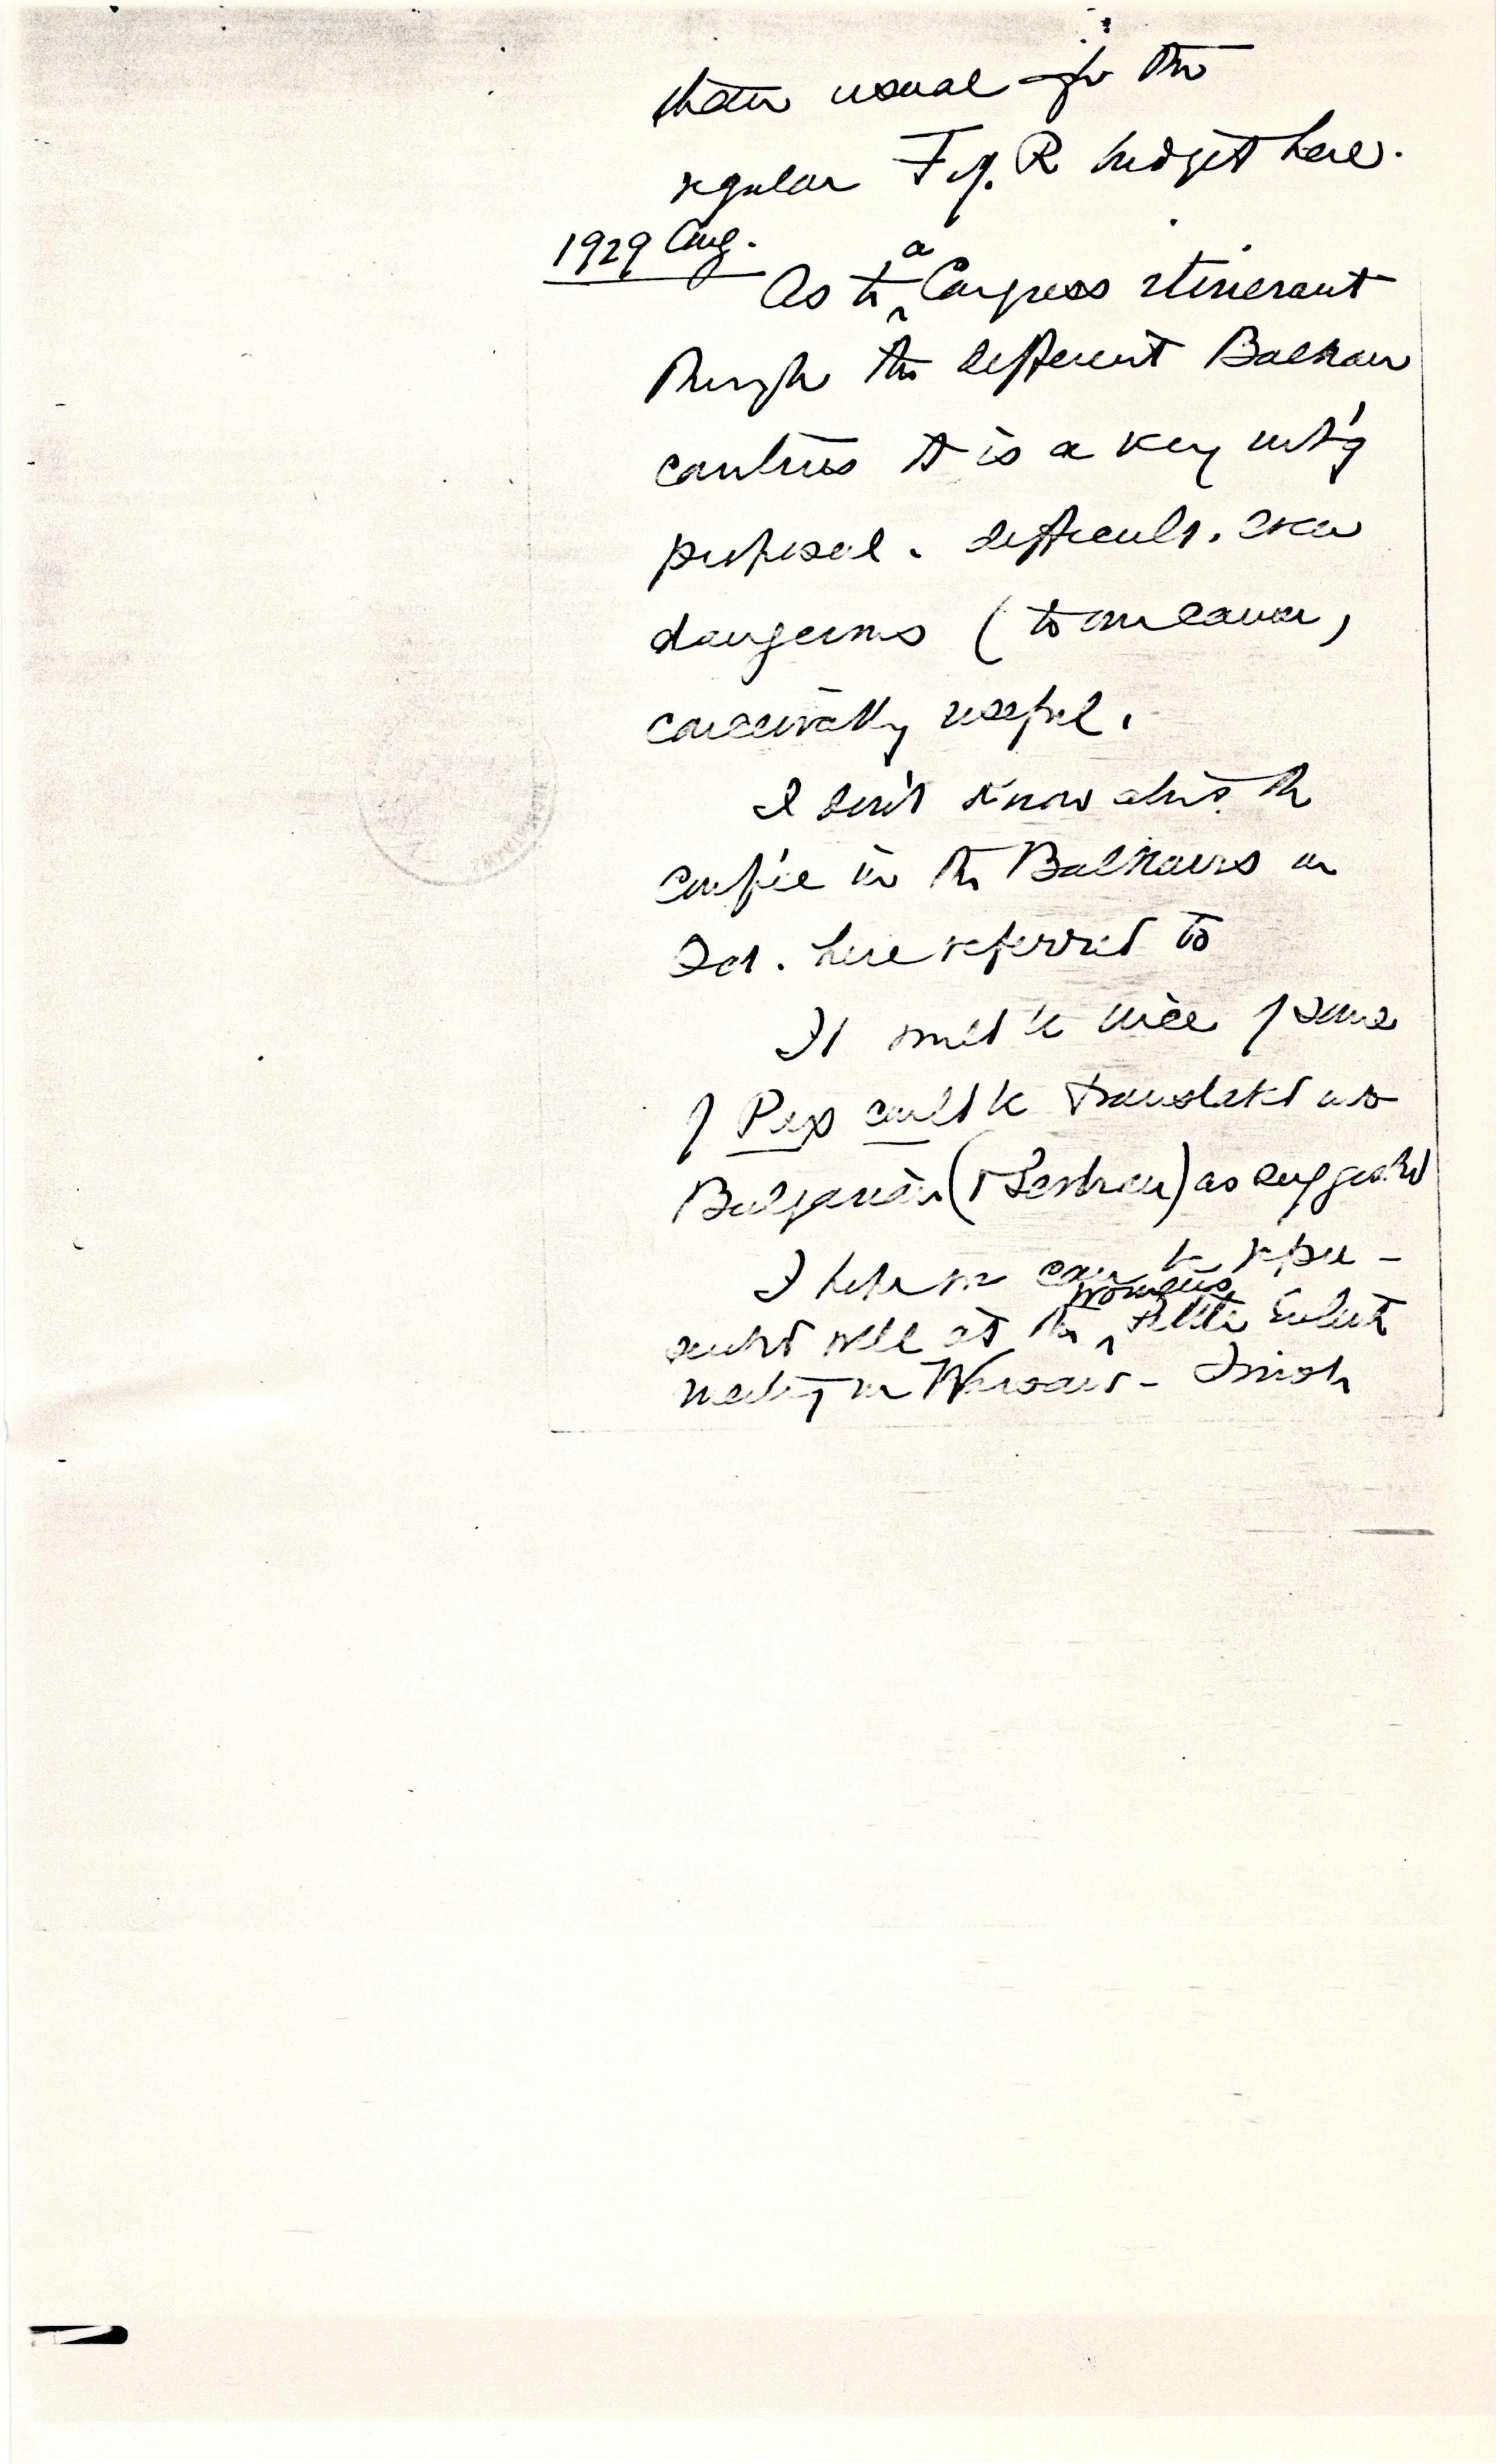 than usual for the
regular F of R budget here.
1929 Aug.
As to a Congress itinerant
through the different Balkan
countries it is a very int'g
proposal. difficult. even
dangerous (to
conceivably useful.
I don't know about the
in the Balkans in
Oct. here referred to
It would be nice if some
of Pax could be translated into
Bulgarian (& Serbian) as suggested
I hope we can be repre-
sented well at the women's
meeting in Warsaw -